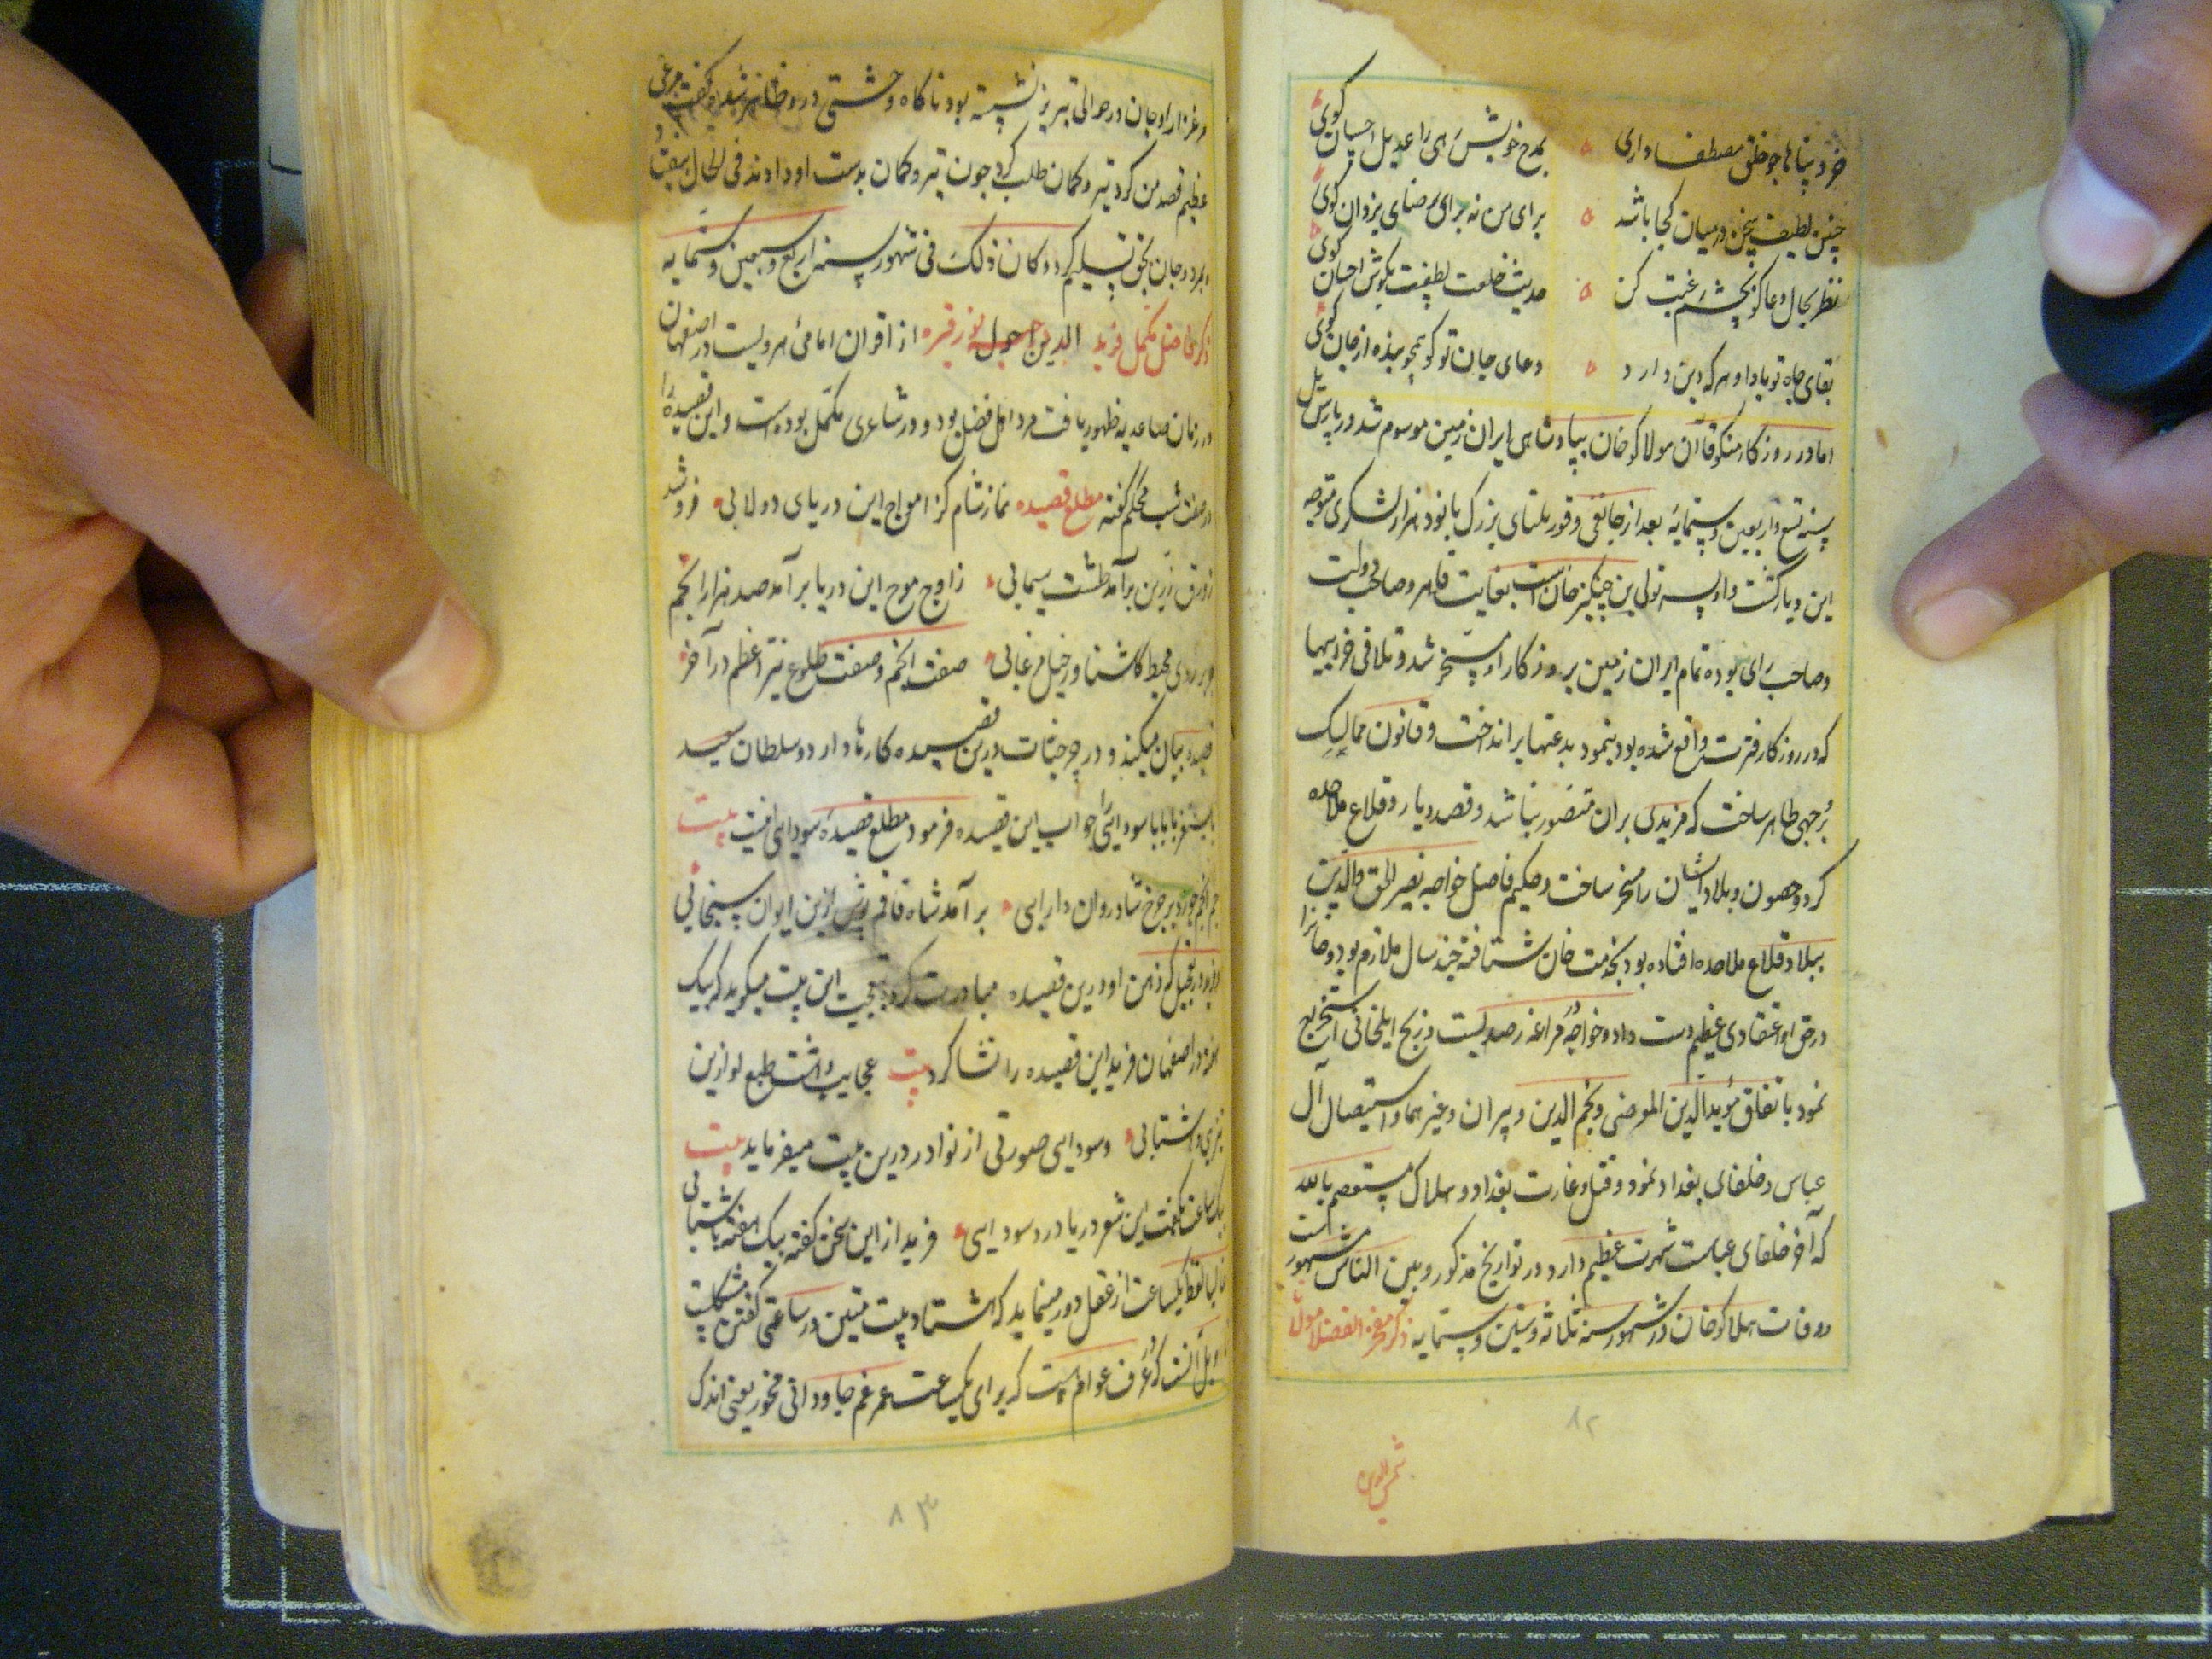 خرد پناها چو خلق مصطفا داری
بمدح خویش رهی را عدیل احسان گوی
چنین لطیف سخن در میان کجا باشد
برای من نه برای رضای یزدان گوی
نظر بحال دعا گو بچشم رغبت کن
حدیث خلعت لطفت بگوش احسان گوی
بقای جاه تو بادا و هر که دین دارد
دعای جان تو گو همچو بنده از جان گوی
اما در روزگار منکوقاآن هولاکو خان بپادشاهی ایران زمین موسوم شد در بارس ئیل
سنه تسع و اربعین و ستمایه بعد از جانقی و قوریلتای بزرک با نود هزار لشکری متوجه
این دیار کشت و او پسر تولی بن چنکیز خان است بغایت قاهر و صاحب دولت
و صاحب رای بوده تمام ایران زمین بروزکار او مسخر شد و تلافی خرابیها
که در روزکار فترت واقع شده بود بنمود بدعتها برانداخت و قانون ممالک
بر وجهی ظاهر ساخت که مزیدی بران متصور نباشد و قصد دیار و قلاع ملاحده
کرد و حصون و بلاد ایشان را مسخر ساخت و حکیم فاضل خواجه نصیر الحق والدین
ببلاد قلاع ملاحده افتاده بود بخدمت خان شتافته چند سال ملازم بود و خانرا
در حق او اعتقادی عظیم دست داد و خواجه در مراغه رصد بست و زیج ایلخانی استخراج
نمود باتفاق مؤید الدین العرضی و نجم الدین دبیران و غیرهما و استیصال آل
عباس و خلفای بغداد نمود و قتل و غارت بغداد و هلاک مستعصم بالله
که آخر خلفای عباست شهرت عظیم دارد و در تواریخ مذکور و بین الناس مشهور است
و وفات هلاکو خان در شهور سنه ثلاثه و ستین و ستمایه ذکر مفخر الفضلا مولانا
شمس الدین
۸۲
مرغزار اوجان در حوالی تبریز نشسته بود ناکاه وحشتی درو ظاهر شد و کفت مرغی
عظیم قصد من کرد تیر و کمان طلب کرد چون تیر و کمان بدست او دادند فی الحال بیفتاد
و بمرد و جان بحق تسلیم کرد و کان ذلک فی شهور سنه اربع و سبعین و ستمایه
ذکر فاضل مکمل فرید الدین احول نور قبره از اقران امامی هرویست در اصفهان
در زمان صاعدیه ظهور یافت مرد اهل فضل بود و در شاعری مکمل بوده است و این قصیده را
در صفت شب محکم کفته مطلع قصیده نماز شام کز امواج این دریای دولابی فرو شد
زورق زرین برآمد طشت سیمابی ز اوج موج این دریا برآمد صد هزار انجم
چو بر روی محیط کاشنا ور خیل مرغابی صفت انجم و صفت طلوع نیر اعظم در آخر
قصیده بیان میکند و درین قصیده کارها دارد و سلطان سعید
بایسنغر بابا سودایی را جواب این قصیده فرمود مطلع قصیده سودایی اینست بیت
برآمد شاه قاقم پوش ازین ایوان سنجابی
که ذهن او درین قصیده مبادرت کرده بحجت این بیت میکوید که یک
روز در اصفهان فرید این قصیده را انشا کرد بیت عجایب داشت طبع او ازین
تیزی و شتابی و سودایی صورتی از نوادر درین بیت میفرماید بیت
بیک ساعت بکفت این شعر دریا در سودایی فرید از این سخن کفته بیک هفته باشتابی
غالبا لفظ یکساعت از عقل دور مینماید که هشتاد بیت متین در ساعتی کفتن مشکلست
تاویل آنست که در عرف عوام است که برای یکساعت عمر غم جاودانی مخور یعنی اندک
۸۳